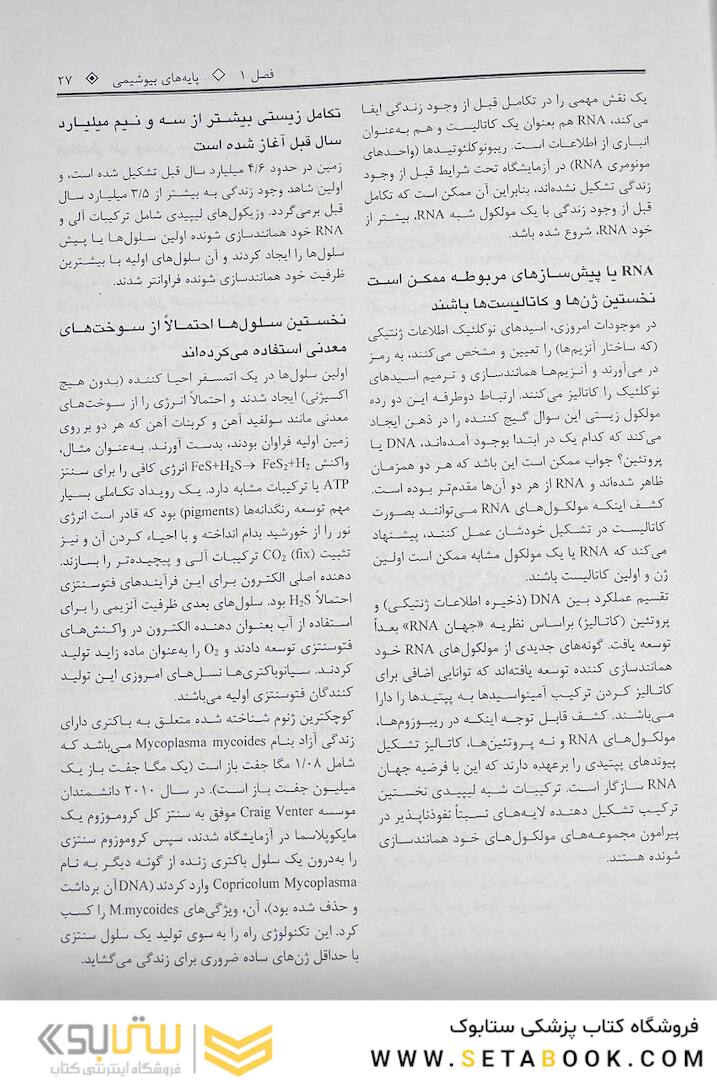 فصل ۱ ◇ پایه‌های بیوشیمی ◈ ۲۷
یک نقش مهمی را در تکامل قبل از وجود زندگی ایفا
می‌کند، RNA هم بعنوان یک کاتالیست و هم به‌عنوان
انباری از اطلاعات است. ریبونوکلئوتیدها (واحدهای
مونومری RNA) در آزمایشگاه تحت شرایط قبل از وجود
زندگی تشکیل نشده‌اند، بنابراین آن ممکن است که تکامل
قبل از وجود زندگی با یک مولکول شبه RNA، بیشتر از
خود RNA، شروع شده باشد.
RNA یا پیش‌سازهای مربوطه ممکن است
نخستین ژن‌ها و کاتالیست‌ها باشند
در موجودات امروزی، اسیدهای نوکلئیک اطلاعات ژنتیکی
(که ساختار آنزیم‌ها) را تعیین و مشخص می‌کنند، به رمز
در می‌آورند و آنزیم‌ها همانندسازی و ترمیم اسیدهای
نوکلئیک را کاتالیز می‌کنند. ارتباط دوطرفه این دو رده
مولکول زیستی این سوال گیج کننده را در ذهن ایجاد
می‌کند که کدام یک در ابتدا بوجود آمده‌اند، DNA یا
پروتئین؟ جواب ممکن است این باشد که هر دو همزمان
ظاهر شده‌اند و RNA از هر دو آن‌ها مقدم‌تر بوده است.
کشف اینکه مولکول‌های RNA می‌توانند بصورت
کاتالیست در تشکیل خودشان عمل کنند، پیشنهاد
می‌کند که RNA یا یک مولکول مشابه ممکن است اولین
ژن و اولین کاتالیست باشند.
تقسیم عملکرد بین DNA (ذخیره اطلاعات ژنتیکی) و
پروتئین (کاتالیز) براساس نظریه «جهان RNA» بعداً
توسعه یافت. گونه‌های جدیدی از مولکول‌های RNA خود
همانندسازی کننده توسعه یافته‌اند که توانایی اضافی برای
کاتالیز کردن ترکیب آمینواسیدها به پپتیدها را دارا
می‌باشند. کشف قابل توجه اینکه در ریبوزوم‌ها،
مولکول‌های RNA و نه پروتئین‌ها، کاتالیز تشکیل
پیوندهای پپتیدی را برعهده دارند که این با فرضیه جهان
RNA سازگار است. ترکیبات شبه لیپیدی نخستین
ترکیب تشکیل دهنده لایه‌های نسبتاً نفوذناپذیر در
پیرامون مجموعه‌های مولکول‌های خود همانندسازی
شونده هستند.
تکامل زیستی بیشتر از سه و نیم میلیارد
سال قبل آغاز شده است
زمین در حدود ۴/۶ میلیارد سال قبل تشکیل شده است، و
اولین شاهد وجود زندگی به بیشتر از ۳/۵ میلیارد سال
قبل برمی‌گردد. وزیکول‌های لیپیدی شامل ترکیبات آلی و
RNA خود همانندسازی شونده اولین سلول‌ها یا پیش
سلول‌ها را ایجاد کردند و آن سلول‌های اولیه با بیشترین
ظرفیت خود همانندسازی شونده فراوانتر شدند.
نخستین سلول‌ها احتمالاً از سوخت‌های
معدنی استفاده می‌کرده‌اند
اولین سلول‌ها در یک اتمسفر احیا کننده (بدون هیچ
اکسیژنی) ایجاد شدند و احتمالاً انرژی را از سوخت‌های
معدنی مانند سولفید آهن و کربنات آهن که هر دو بر روی
زمین اولیه فراوان بودند، بدست آورند. به‌عنوان مثال،
واکنش FeS+H₂S→ FeS₂+H₂ انرژی کافی را برای سنتز
ATP یا ترکیبات مشابه دارد. یک رویداد تکاملی بسیار
مهم توسعه رنگدانه‌ها (pigments) بود که قادر است انرژی
نور را از خورشید بدام انداخته و با احیاء کردن آن و نیز
تثبیت (fix) CO₂ ترکیبات آلی و پیچیده‌تر را بسازند.
دهنده اصلی الکترون برای این فرآیندهای فتوسنتزی
احتمالاً H₂S بود. سلول‌های بعدی ظرفیت آنزیمی را برای
استفاده از آب بعنوان دهنده الکترون در واکنش‌های
فتوسنتزی توسعه دادند و O₂ را به‌عنوان ماده زاید تولید
کردند. سیانوباکتری‌ها نسل‌های امروزی این تولید
کنندگان فتوسنتزی اولیه می‌باشند.
کوچکترین ژنوم شناخته شده متعلق به باکتری دارای
زندگی آزاد بنام Mycoplasma mycoides می‌باشد که
شامل ۱/۰۸ مگا جفت باز است (یک مگا جفت باز یک
میلیون جفت باز است). در سال ۲۰۱۰ دانشمندان
موسسه Craig Venter موفق به سنتز کل کروموزوم یک
مایکوپلاسما در آزمایشگاه شدند، سپس کروموزوم سنتزی
را به‌درون یک سلول باکتری زنده از گونه دیگر به نام
Copricolum Mycoplasma وارد کردند (DNA آن برداشت
و حذف شده بود)، آن، ویژگی‌های M.mycoides را کسب
کرد. این تکنولوژی راه را به سوی تولید یک سلول سنتزی
با حداقل ژن‌های ساده ضروری برای زندگی می‌گشاید.
فروشگاه کتاب پزشکی ستابوک
WWW.SETABOOK.COM
ستابوک
فروشگاه اینترنتی کتاب